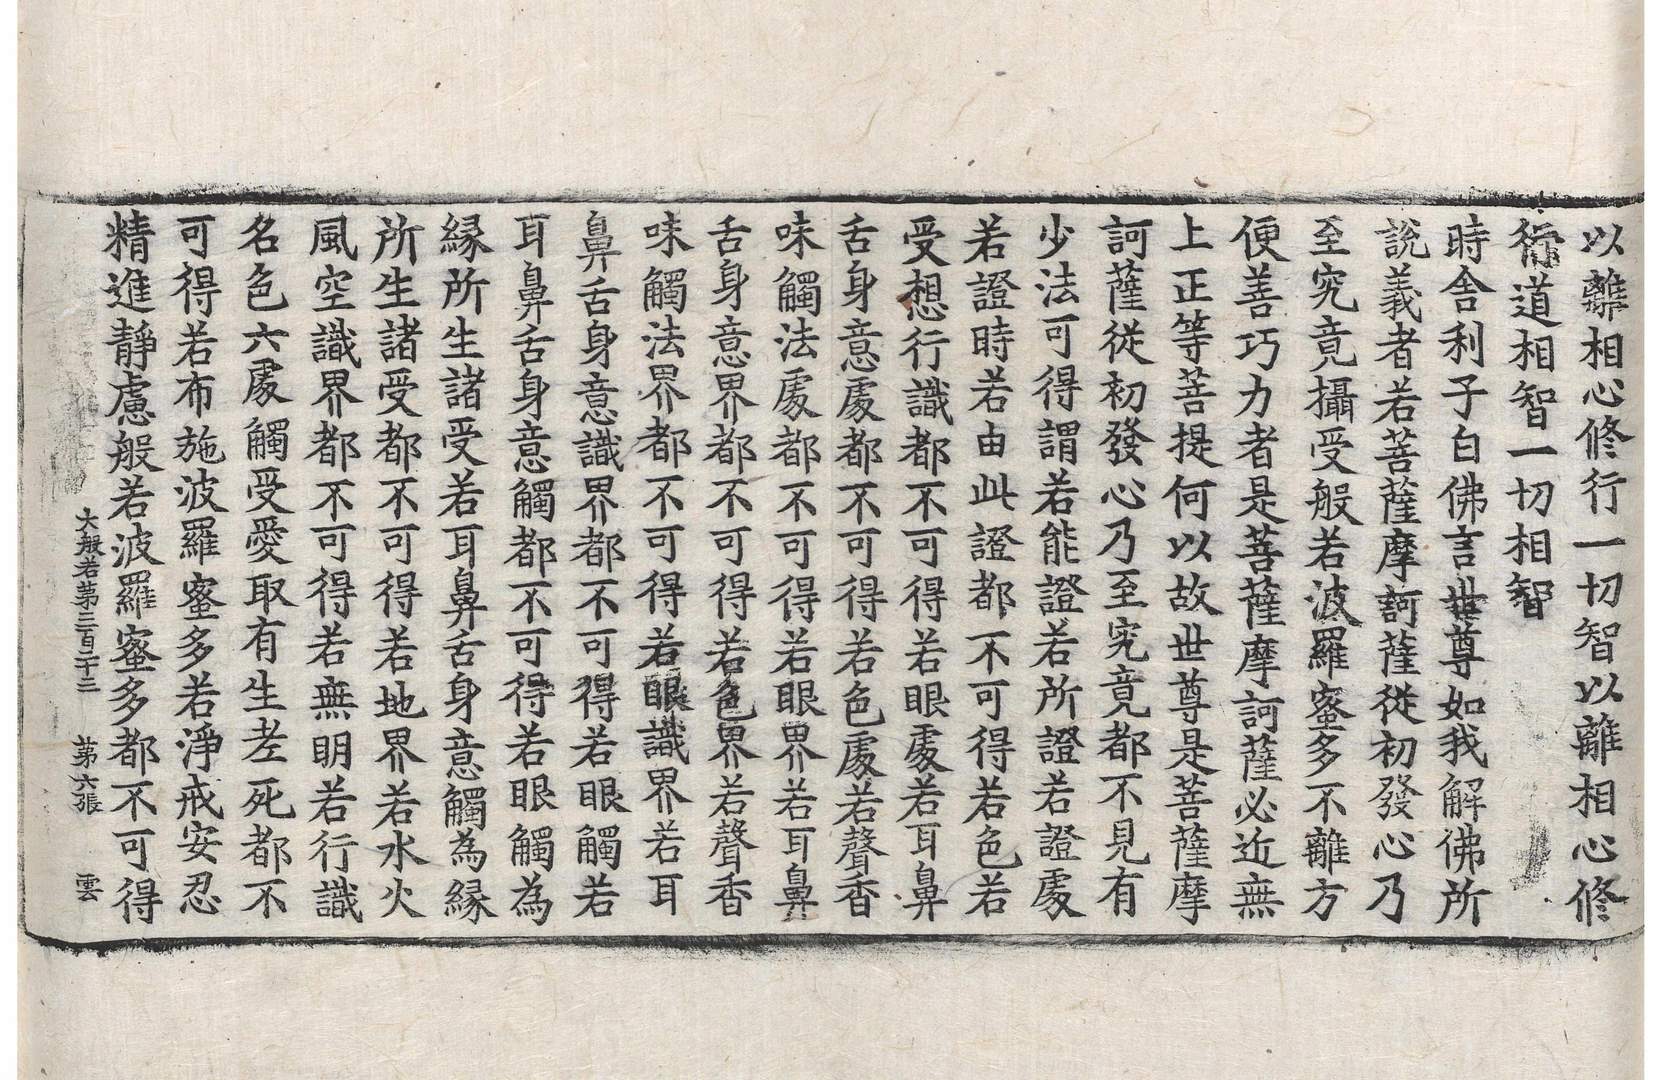 以離相心修行一切智以離相心修
行道相智一切相智
時舍利子白佛言世尊如我解佛所
說義者若菩薩摩訶薩從初發心乃
至究竟攝受般若波羅蜜多不離方
便善巧力者是菩薩摩訶薩必近無
上正等菩提何以故世尊是菩薩摩
訶薩從初發心乃至究竟都不見有
少法可得謂若能證若所證若證處
若證時若由此證都不可得若色若
受想行識都不可得若眼處若耳鼻
舌身意處都不可得若色處若聲香
味觸法處都不可得若眼界若耳鼻
舌身意界都不可得若色界若聲香
味觸法界都不可得若眼識界若耳
鼻舌身意識界都不可得若眼觸若
耳鼻舌身意觸都不可得若眼觸為
緣所生諸受若耳鼻舌身意觸為緣
所生諸受都不可得若地界若水火
風空識界都不可得若無明若行識
名色六處觸受愛取有生老死都不
可得若布施波羅蜜多若淨戒安忍
精進靜慮般若波羅蜜多都不可得
大般若第三百二十三 第六張 雲